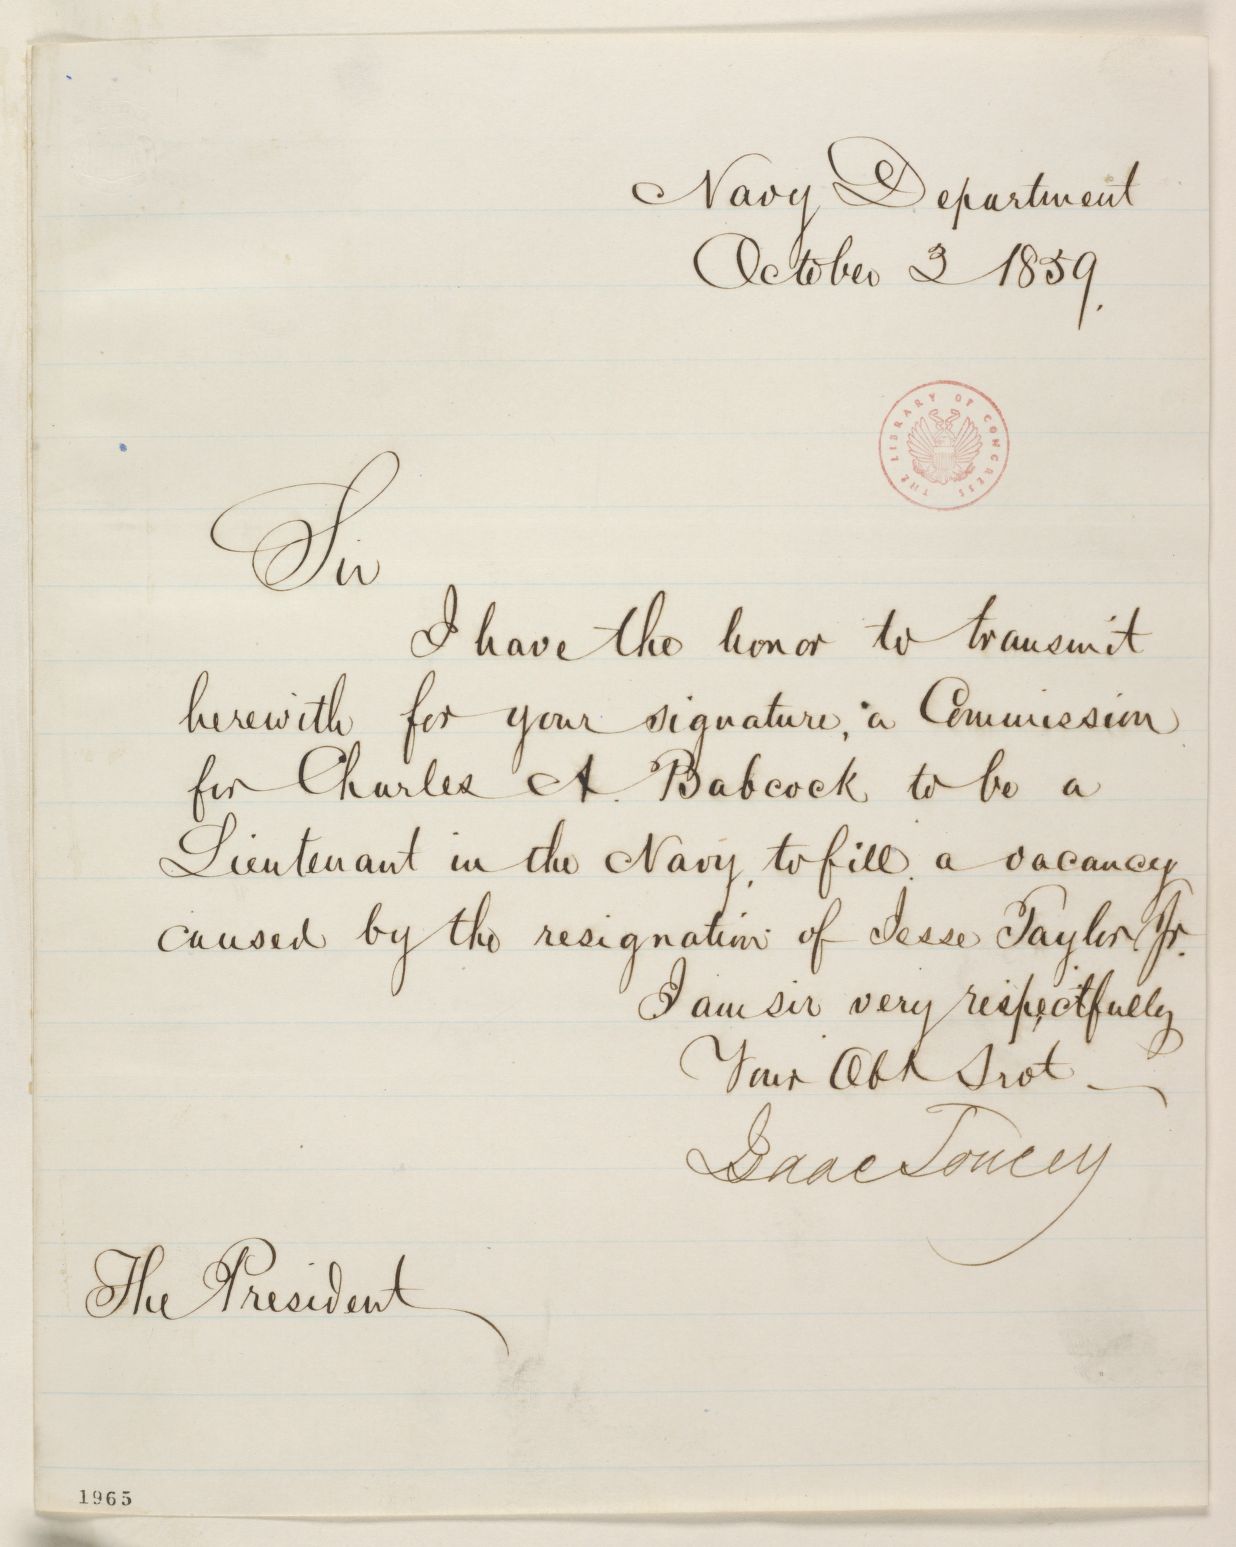 Navy Department
October 3 1859.
THE LIBRARY OF CONGRESS
Sir
I have the honor to transmit
herewith for your signature, a Commission
for Charles A. Babcock to be a
Lieutenant in the Navy, to fill a vacancy
caused by the resignation of Jesse Taylor Jr.
I am sir very respectfully
Your Obt Srvt
Isaac Toucey
The President
1965